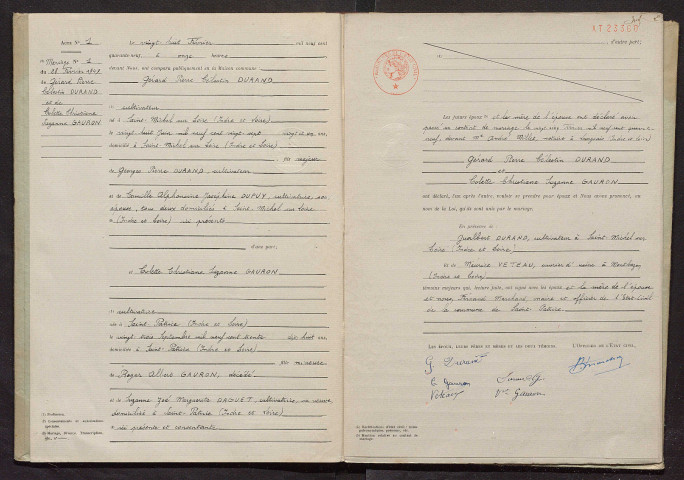 Acte N° 2
Mariage N° 2
du 28 Février 1949
de Gérard Pierre
Célestin DURAND
et de
Colette Christiane
Suzanne GAURON
Le vingt huit Février mil neuf cent
quarante neuf, à onze heures
devant Nous, ont comparu publiquement en la Maison commune
Gérard Pierre Célestin DURAND
cultivateur
né à Saint Michel sur Loire (Indre et Loire)
le vingt huit Juin mil neuf cent vingt sept vingt et un ans,
domicilié à Saint Michel sur Loire (Indre et Loire)
fils majeur
de Georges Pierre DURAND, cultivateur
et de Camille Alphonsine Joséphine DUPUY, cultivatrice, son
épouse, tous deux domiciliés à Saint Michel sur Loire
(Indre et Loire) ici présents
d'une part,
et Colette Christiane Suzanne GAURON
cultivatrice
née à Saint Patrice (Indre et Loire)
le vingt trois Septembre mil neuf cent trente dix huit ans,
domiciliée à Saint Patrice (Indre et Loire)
fille mineure
de Roger Albert GAURON, décédé
et de Suzanne Zoé Marguerite DAGUET, cultivatrice, sa veuve,
domiciliée à Saint Patrice (Indre et Loire)
ici présente et consentante
1) Profession.
XT 23360
d'autre part;
Les futurs époux et la mère de l'épouse ont déclaré avoir
passé un contrat de mariage le vingt cinq Février mil neuf cent quarante
neuf, devant Me André Millié, notaire à Langeais (Indre et Loire)
Gérard Pierre Célestin DURAND
et
Colette Christiane Suzanne GAURON
ont déclaré, l'un après l'autre, vouloir se prendre pour époux et Nous avons prononcé, au
nom de la Loi, qu'ils sont unis par le mariage.
En présence de
DURAND, cultivateur à Saint Michel sur
Loire (Indre et Loire)
et de Maurice VETEAU, ouvrier d'usine à Montbazon
(Indre et Loire)
témoins majeurs qui, lecture faite, ont signé avec les époux et la mère de l'épouse
et nous, Fernand Marchand, maire et officier de l'État-Civil
de la commune de Saint Patrice
LES ÉPOUX, LEURS PÈRES ET MÈRES ET LES DEUX TÉMOINS,
L'OFFICIER DE L'ÉTAT CIVIL,
G Durand
C Gauron
Veteau
Vve Gauron